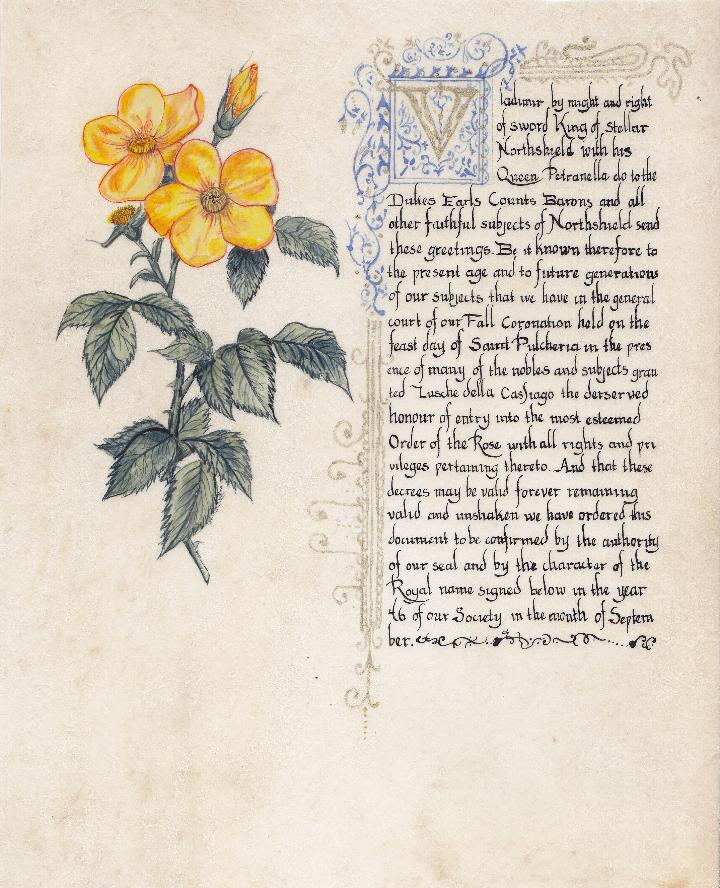 Vladimir by might and right
of sword King of Stellar
Northshield with his
Queen Petranella do to the
Dukes Earls Counts Barons and all
other faithful subjects of Northshield send
these greetings. Be it known therefore to
the present age and to future generations
of our subjects that we have in the general
court of our Fall Coronation held on the
feast day of Saint Pulcheria in the pres
ence of many of the nobles and subjects gran
ted Zusche della Cassiago the derserved
honour of entry into the most esteemed
Order of the Rose with all rights and pri
vileges pertaining thereto. And that these
decrees may be valid forever remaining
valid and unshaken we have ordered this
document to be confirmed by the authority
of our seal and by the character of the
Royal name signed below in the year
46 of our Society in the month of Septem
ber.